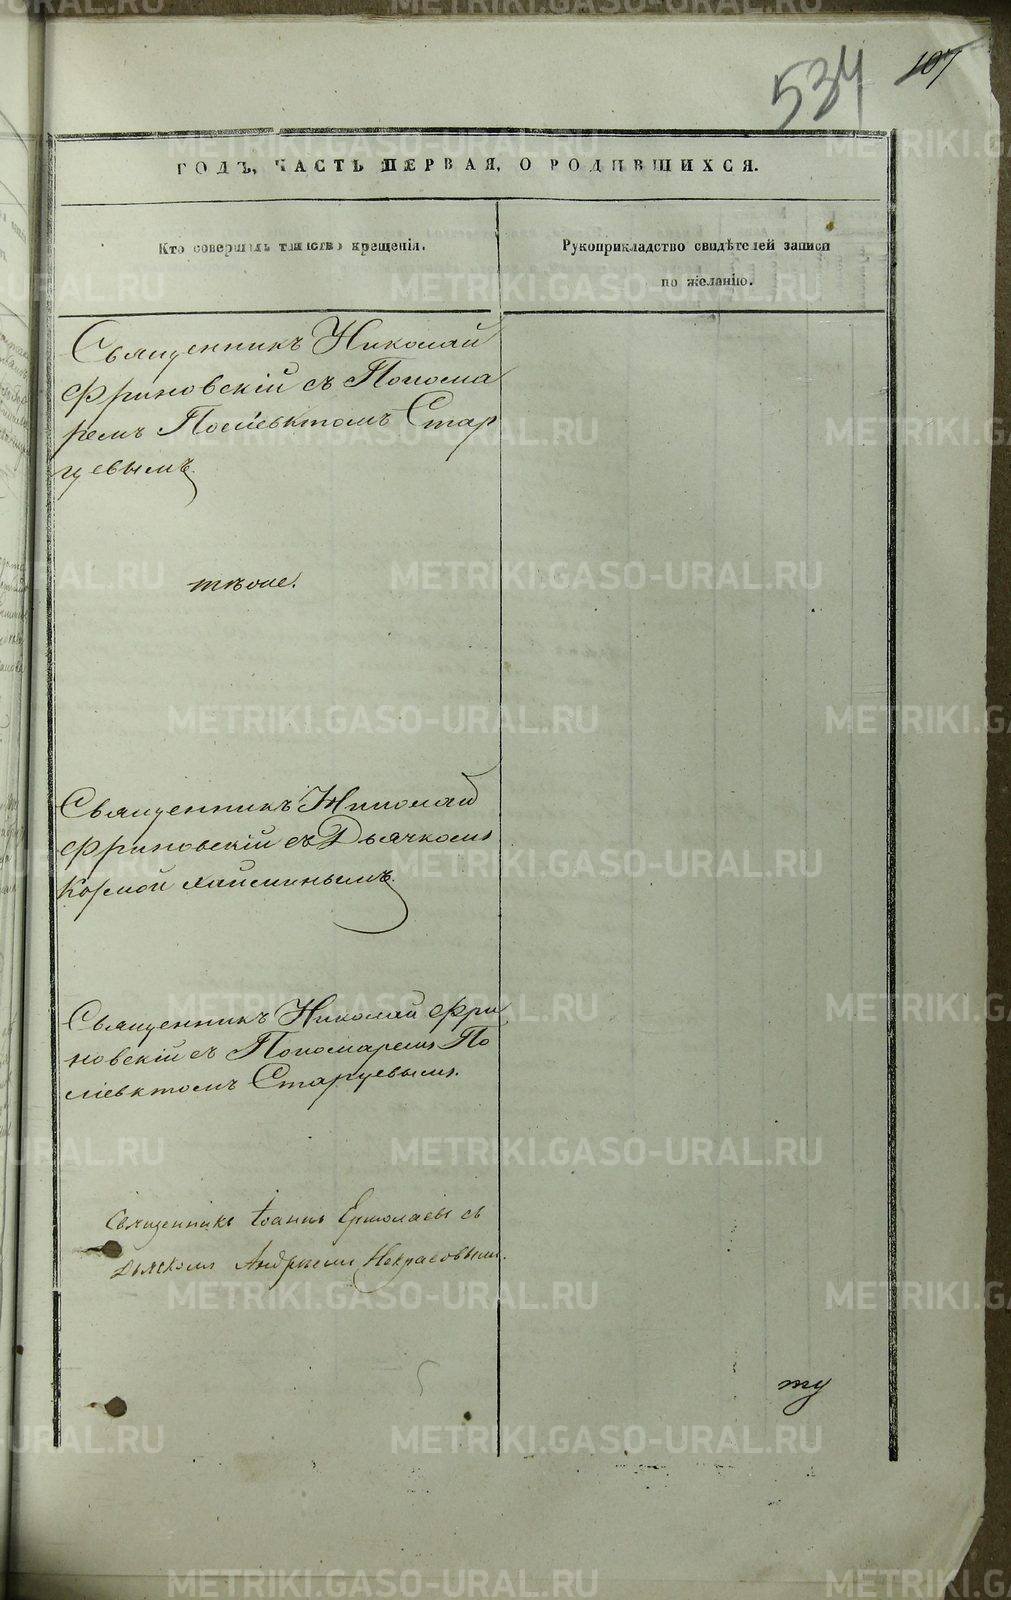 534
107
ГОДЪ, ЧАСТЬ ПЕРВАЯ, О РОДИВШИХСЯ.
Кто совершалъ таинство крещенія.
Рукоприкладство свидѣтелей записи
по желанію.
Священникъ Николай
Фриновскій съ Понома
ремъ Поліевктомъ Стар
цевымъ.
тѣже.
Священникъ Николай
Фриновскій съ Дьячкомъ
Козмой
Священникъ Николай Фри
новскій съ Пономаремъ По
ліевктомъ Старцевымъ.
Священникъ Іоаннъ Ермолаевъ съ
дьячкомъ Андреемъ Некрасовымъ.
METRIKI.GASO-URAL.RU